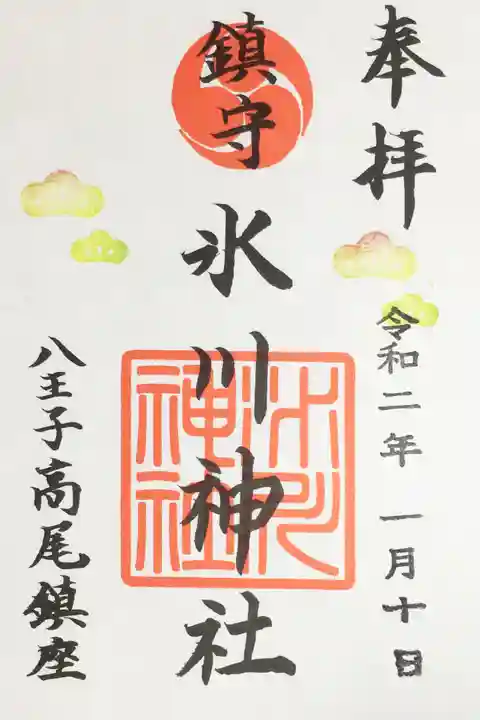 奉拝
令和二年 一月十日
鎮守
氷川神社
氷川神社
八王子高尾鎮座